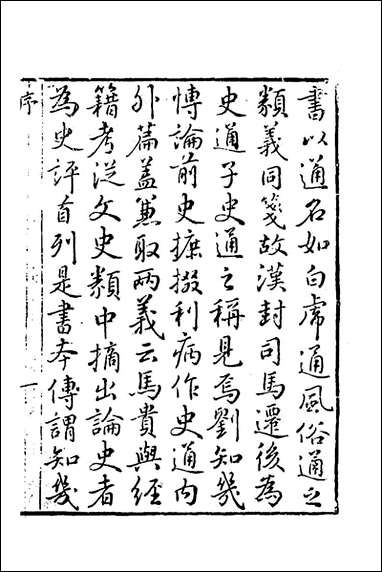 書以通名如白虎通風俗通之
類義同箋故漢封司馬遷後為
史通子史通之稱見焉劉知幾
博論前史摭掇利病作史通內
外篇蓋兼取兩義云馬貴與經
籍考從文史類中摘出論史者
為史評首列是書本傳謂知幾
序
一